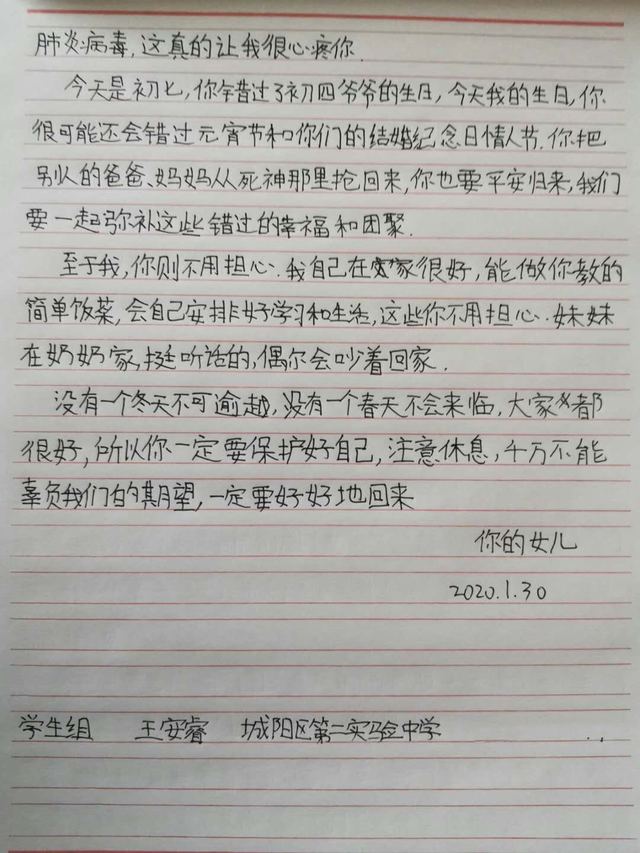 肺炎病毒,这真的让我很心疼你.
今天是初七,你错过了初四爷爷的生日,今天我的生日,你
很可能还会错过元宵节和你们的结婚纪念日情人节.你把
别人的爸爸、妈妈从死神那里抢回来,你也要平安归来,我们
要一起弥补这些错过的幸福和团聚.
至于我,你则不用担心.我自己在家很好,能做你教的
简单饭菜,会自己安排好学习和生活,这些你不用担心.妹妹
在奶奶家,挺听话的,偶尔会吵着回家.
没有一个冬天不可逾越,没有一个春天不会来临,大家都
很好,所以你一定要保护好自己,注意休息,千万不能
辜负我们的期望,一定要好好地回来
你的女儿
2020.1.30
学生组 王安睿 城阳区第二实验中学